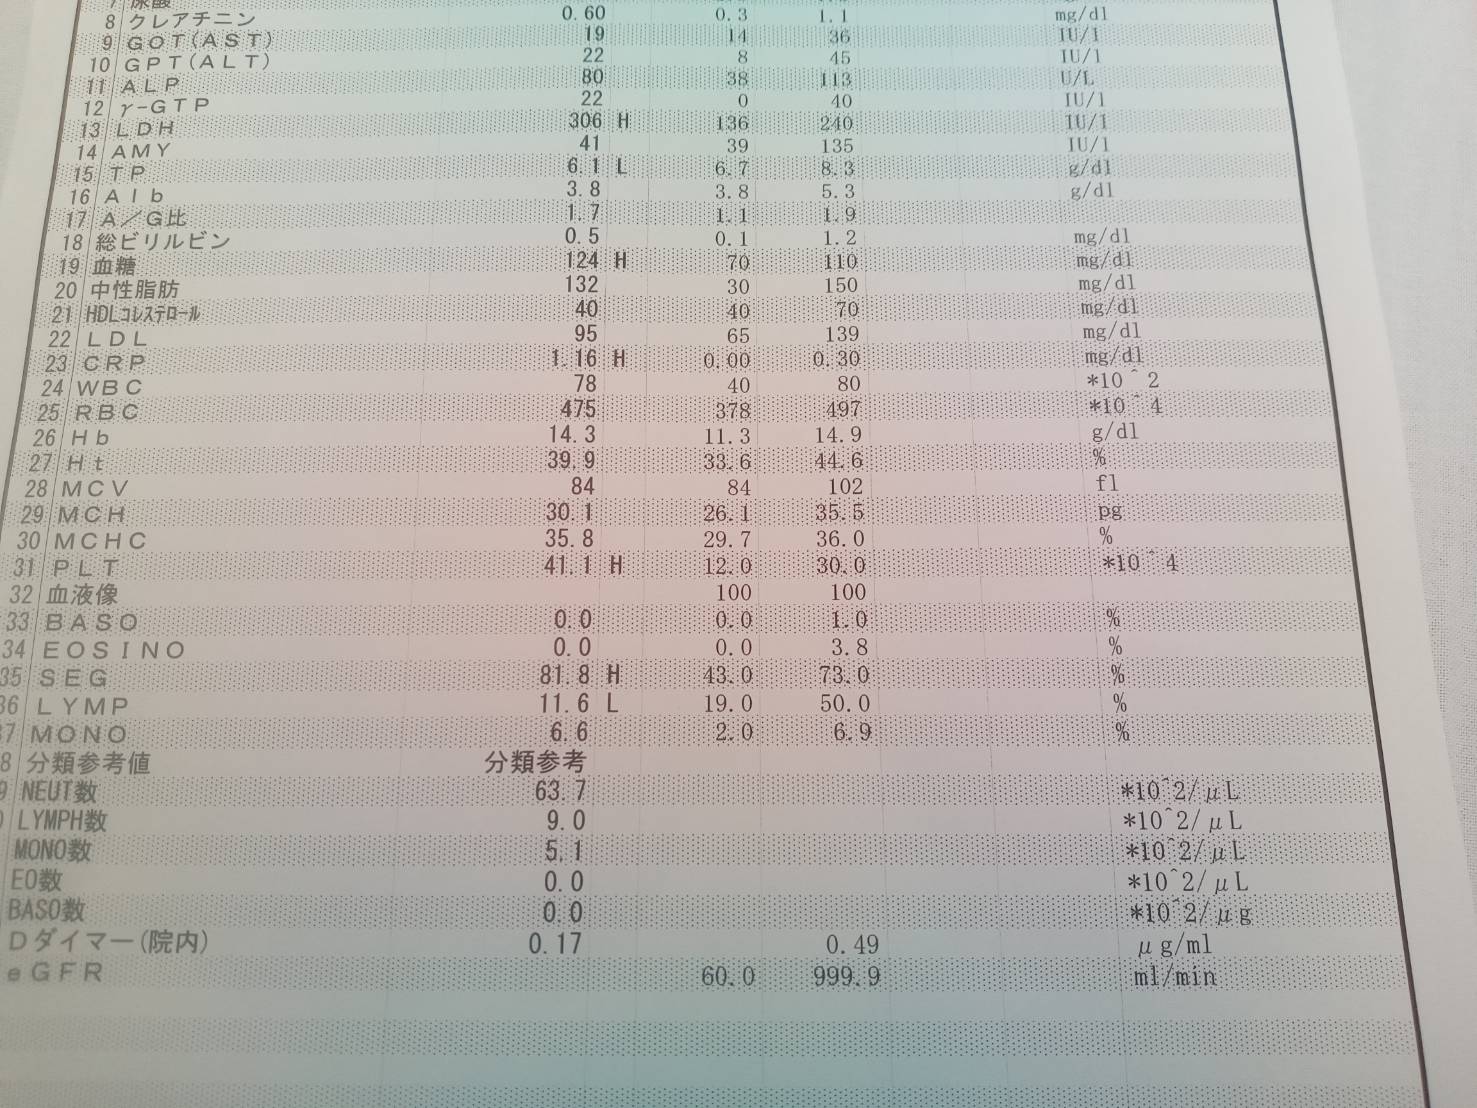 7 尿酸
8 クレアチニン 0.60 0.3 1.1 mg/dl
9 GOT(AST) 19 14 36 IU/l
10 GPT(ALT) 22 8 45 IU/l
11 ALP 80 38 113 U/L
12 γ-GTP 22 0 40 IU/l
13 LDH 306 H 136 240 IU/l
14 AMY 41 39 135 IU/l
15 TP 6.1 L 6.7 8.3 g/dl
16 Alb 3.8 3.8 5.3 g/dl
17 A/G比 1.7 1.1 1.9
18 総ビリルビン 0.5 0.1 1.2 mg/dl
19 血糖 124 H 70 110 mg/dl
20 中性脂肪 132 30 150 mg/dl
21 HDLコレステロール 40 40 70 mg/dl
22 LDL 95 65 139 mg/dl
23 CRP 1.16 H 0.00 0.30 mg/dl
24 WBC 78 40 80 *10^2
25 RBC 475 378 497 *10^4
26 Hb 14.3 11.3 14.9 g/dl
27 Ht 39.9 33.6 44.6 %
28 MCV 84 84 102 fl
29 MCH 30.1 26.1 35.5 pg
30 MCHC 35.8 29.7 36.0 %
31 PLT 41.1 H 12.0 30.0 *10^4
32 血液像 100 100
33 BASO 0.0 0.0 1.0 %
34 EOSINO 0.0 0.0 3.8 %
35 SEG 81.8 H 43.0 73.0 %
36 LYMP 11.6 L 19.0 50.0 %
37 MONO 6.6 2.0 6.9 %
8 分類参考値 分類参考
9 NEUT数 63.7 *10^2/μL
0 LYMPH数 9.0 *10^2/μL
MONO数 5.1 *10^2/μL
EO数 0.0 *10^2/μL
BASO数 0.0 *10^2/μg
Dダイマー(院内) 0.17 0.49 μg/ml
eGFR 60.0 999.9 ml/min